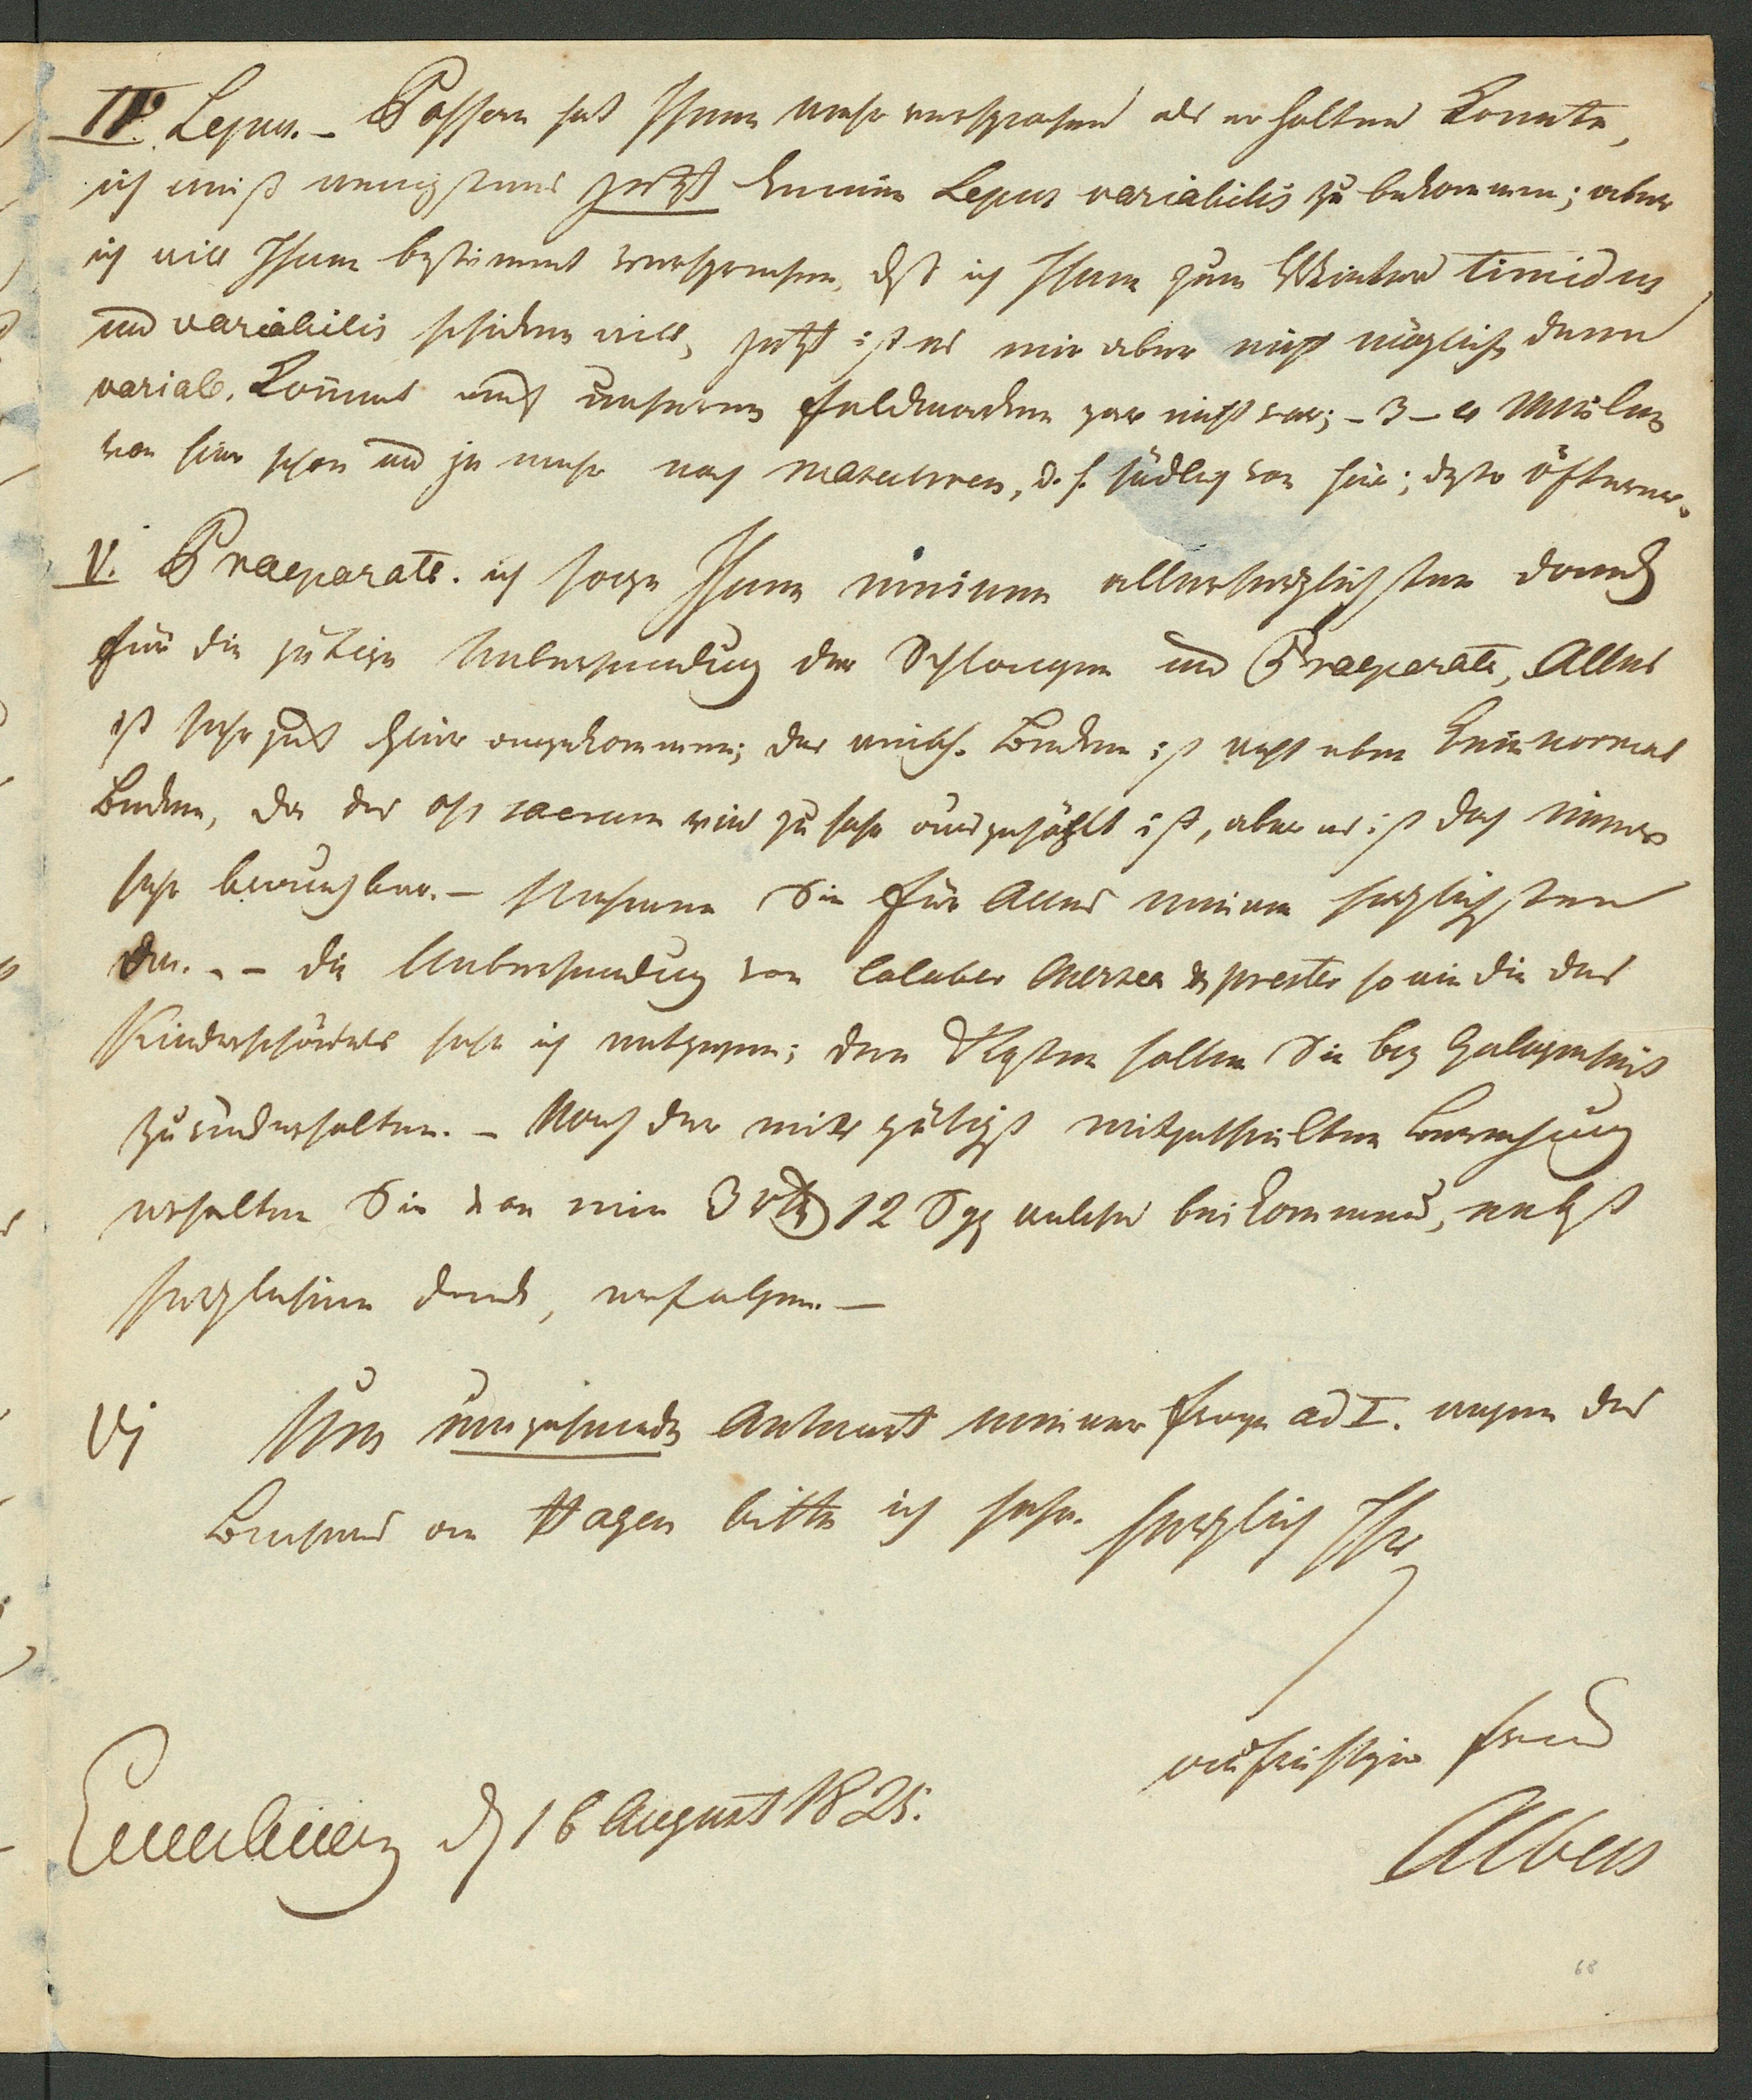 IV. Lepus. – Possern hat Ihnen mehr versprochen als er halten konnte,
ich weiß wenigstens jetzt keinen Lepus variabilis zu bekommen; aber
ich will Ihnen bestimmt versprechen, daß ich Ihnen zum Winter timidus
und variabilis schicken will, jetzt ist es mir aber nicht möglich denn
variab. kommt auf unseren Feldmarken gar nicht vor; – 3 – 4 Meilen
von hier schon und je mehr nach Masuhren, d. h. südlich von hier; desto öfterer.
V. Praeparate. ich sage Ihnen meinen allerherzlichsten Dank
für die gütige Uebersendung der Schlangen und Praeparate, Alles
ist sehr gut hier angekommen; das weibl. Becken ist nicht eben kein normal
Becken, da das oss sacrum viel zu sehr ausgehöhlt ist, aber es ist doch immer
sehr brauchbar. – Nehmen Sie für Alles meinen herzlichsten
Dk. – – die Uebersendung von Coluber Chersea & prester so wie die des
Kinderschädels sehe ich entgegen; den Kasten sollen Sie bey Gelegenheit
zurückerhalten. – Nach der mir gütigst mitgetheilten Berechnung
erhalten Sie von mir 3 rth 12 Sgr welche beikommend, nebst
herzlichem Dank, erfolgen. –
VI Um umgehende Antwort meiner Frage ad I. wegen des
Besuchs an Hagen bitte ich sehr. herzlich Ihr
aufrichtiger Freund
Gumbinnen d 16 August 1825.
Albers
68